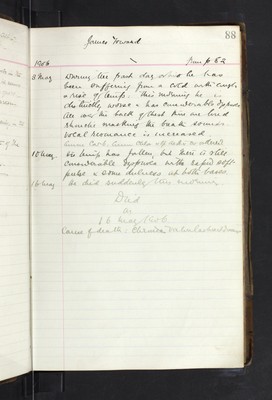 88
James Howard
1906 from p 62
8 May During the past day or so he has
been suffering from a cold with cough
& rise of temp. This morning he is
distinctly worse & has considerable dyspnoea
All over his back & chest there are loud
rhonchi masking the breath sounds
vocal resonance is increased
Ammon Carb.
15 May His temp has fallen but there is still
considerable dyspnoea with rapid soft
pulse & some dulness at both bases
16 May He died suddenly this morning
Died
on
16 May 1906
Cause of death: Chronic Valvular Heart Disease